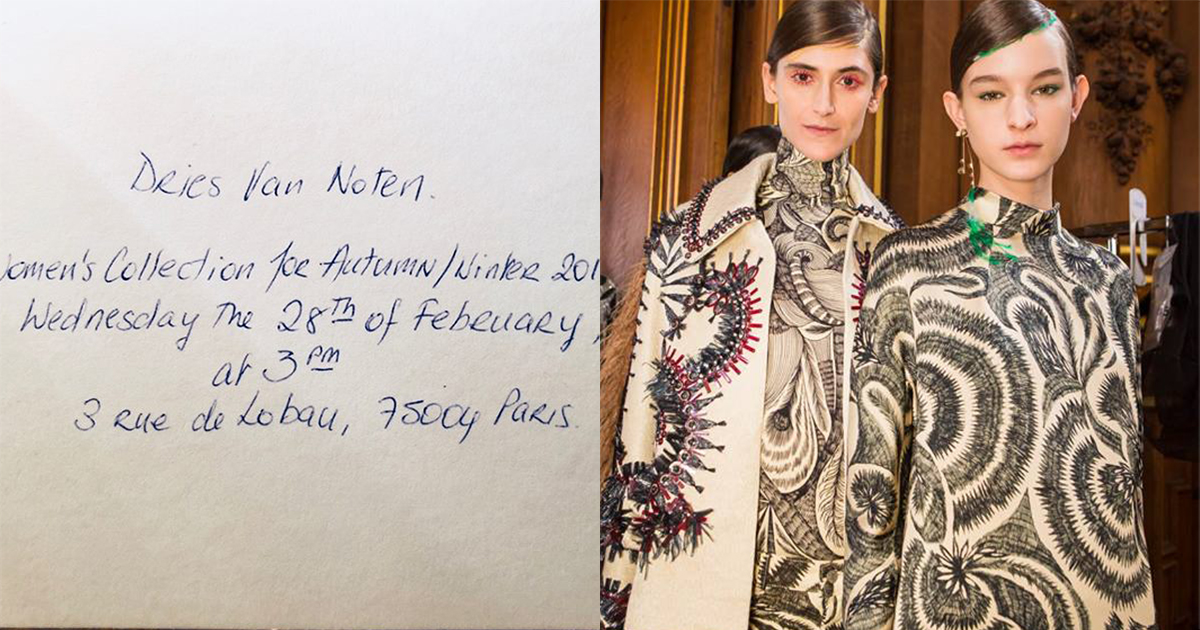 Dries Van Noten.
Women's Collection for Autumn/Winter 201
Wednesday the 28th of February,
at 3 pm
3 rue de Lobau, 75004 Paris.